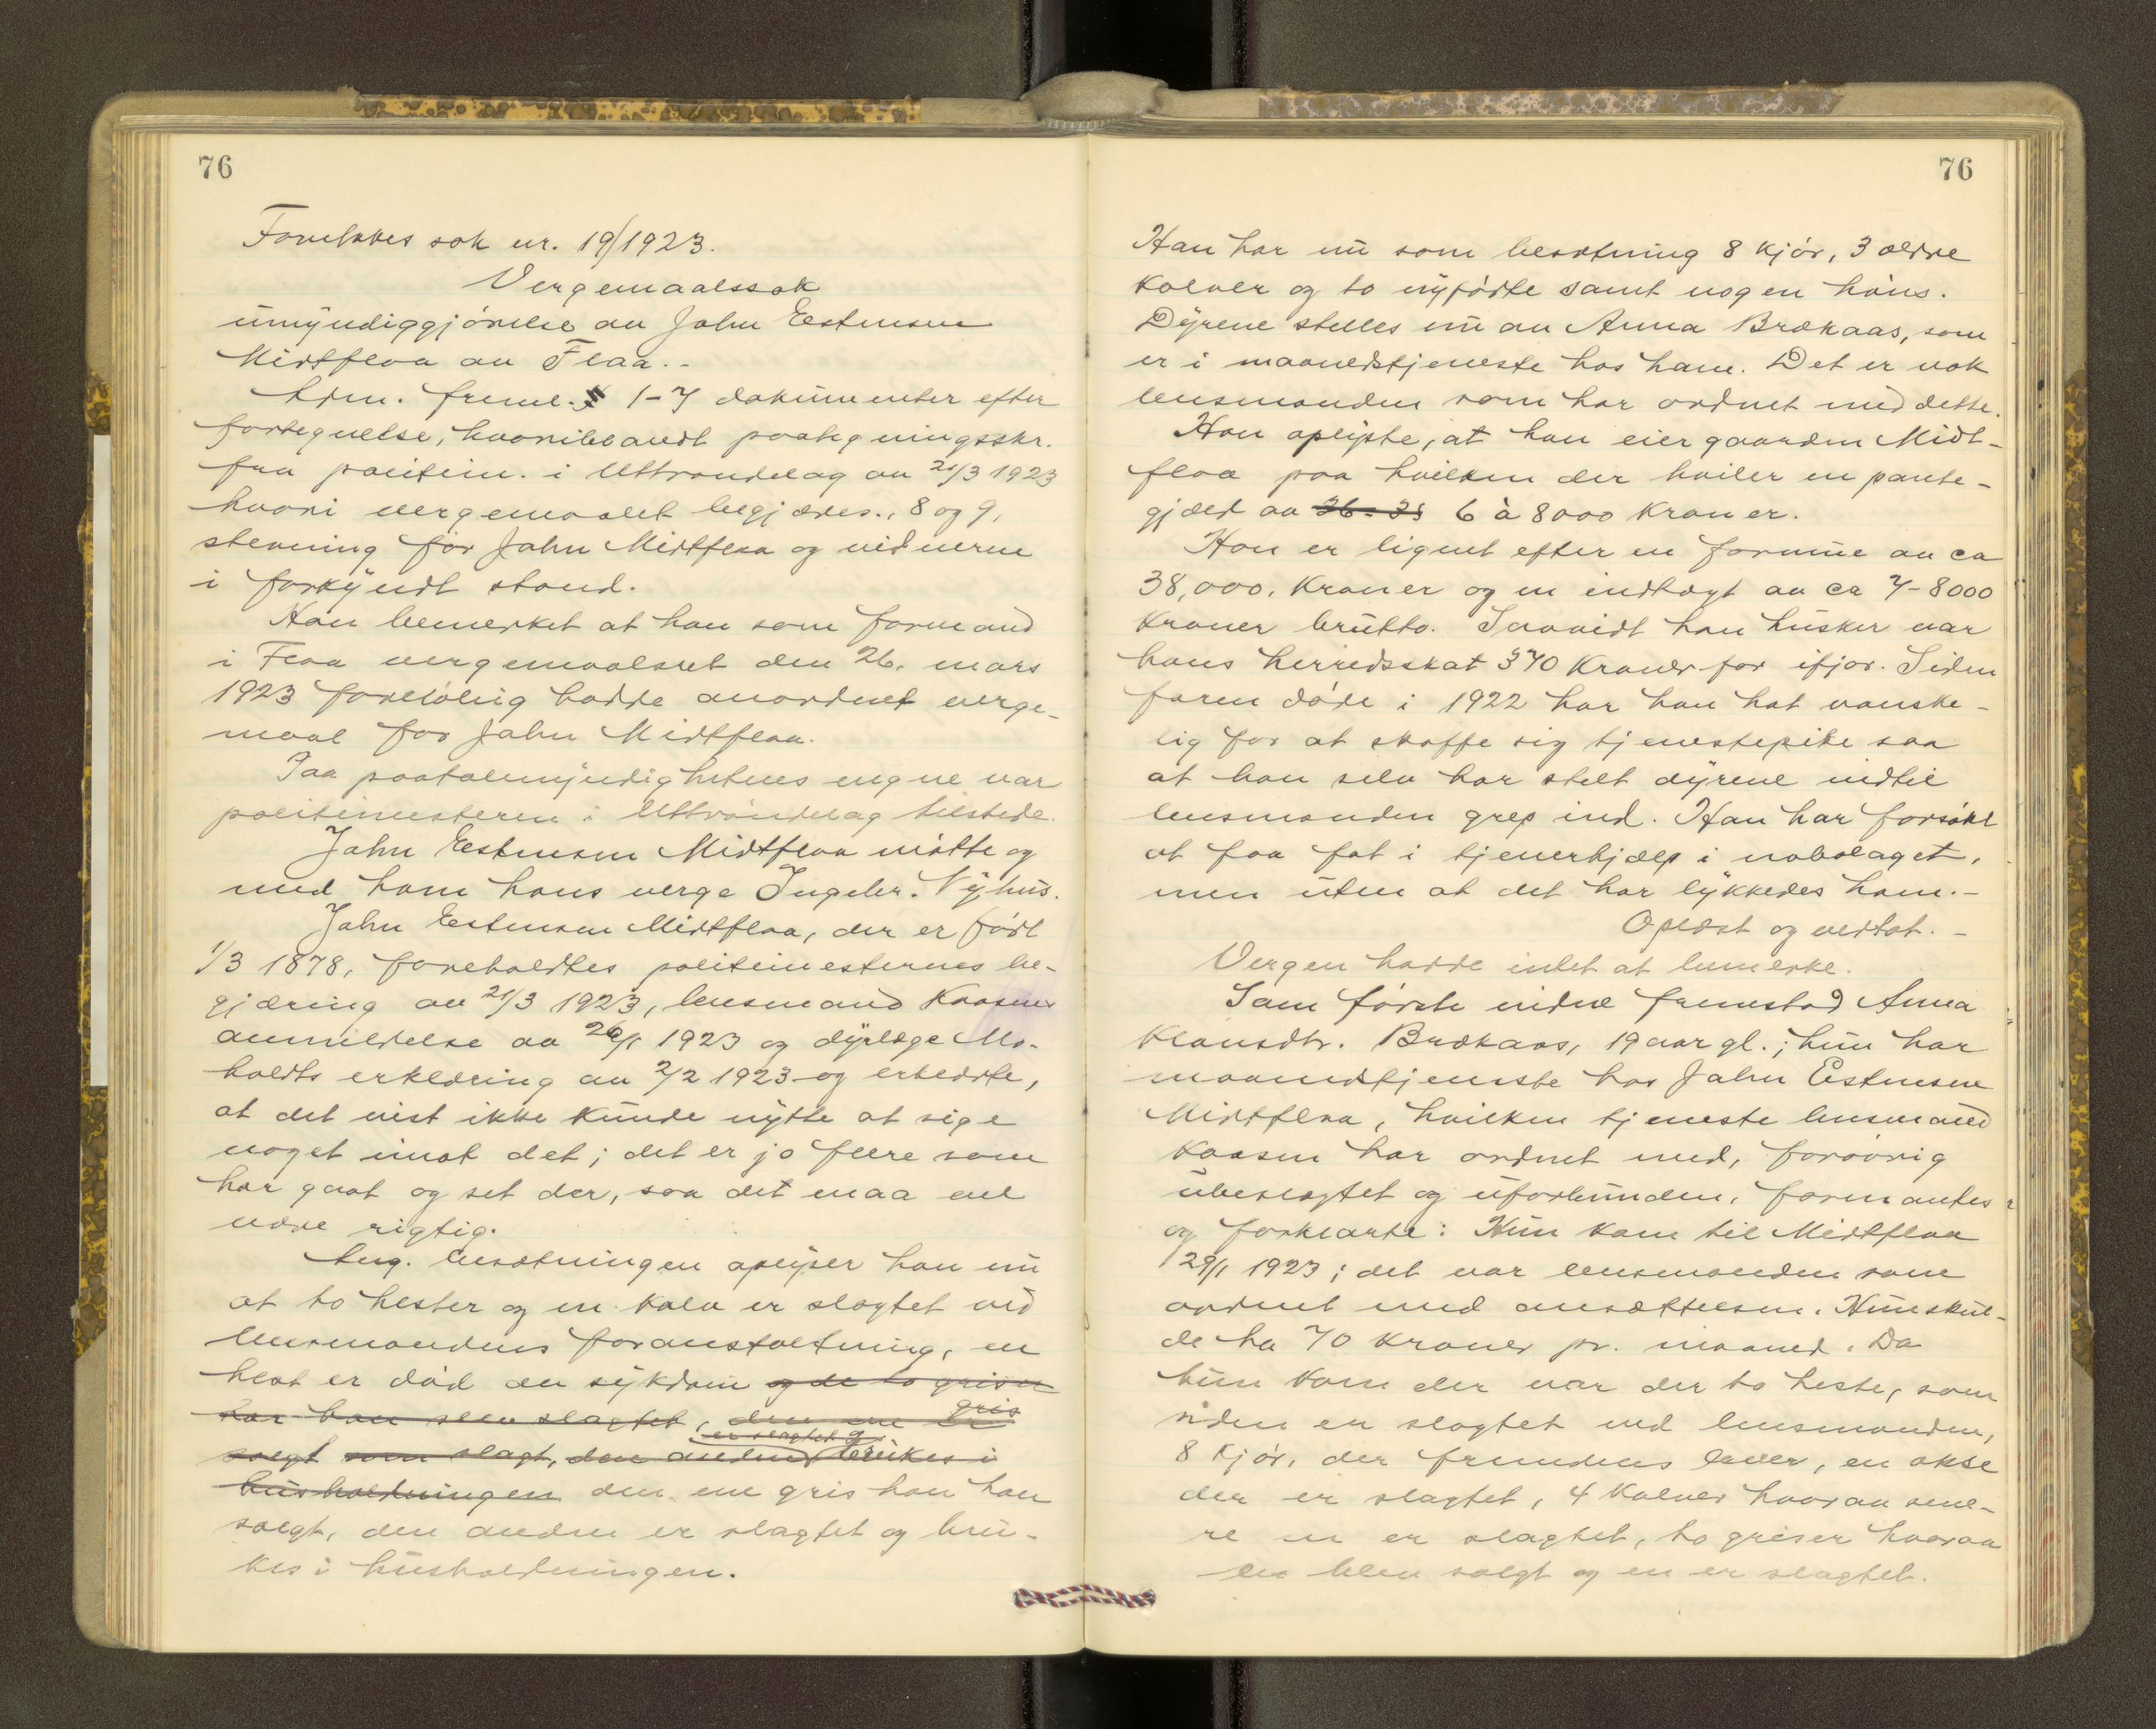 76
Foretokes sak nr. 19/1923.
Vergemaalssak
umyndiggjörelse av John Estensen
Midtflaa av Flaa..
Adm. freml. 1-7 dokumenter efter
fortegnelse, hvoriblandt paategningsskr.
fra politim. i Uttrøndelag av 21/3 1923
hvori vergemaalet begjæres., 8 og 9,
stevning for John Midtflaa og vidnerne
i forkyndt stand.
Han bemerket at han som formand
i Flaa vergemaalsret den 26. mars
1923 foreløbig hadde anordnet verge-
maal for John Midtflaa.
Paa paatalemyndighetens vegne var
politimesteren i Uttrøndelag tilstede.
John Estensen Midtflaa møtte og
med ham hans verge Ingebr. Nyhus.
John Estensen Midtflaa, der er født
1/3 1878, foreholdtes politimesterens be-
gjæring av 21/3 1923, lensmand Kaasens
anmeldelse av 26/1 1923 og dyrlæge Mo-
holdts erklæring av 2/2 1923 og erklærte,
at det vist ikke kunde nytte at sige
noget imot det; det er jo flere som
har gaat og set der, saa det maa vel
være rigtig.
Ang. besætningen oplyser han nu
at to hester og en kalv er slagtet ved
lensmandens foranstaltning, en
hest er død av sykdom og de to griser
har han selv slagtet, den ene gris er
solgt som slagt, den anden er slagtet og brukes i
husholdningen den ene gris har han
solgt, den anden er slagtet og bru-
kes i husholdningen.
76
Han har nu som besætning 8 kjør, 3 ældre
kalver og to nyfødte samt nogen høns.
Dyrene stelles nu av Anna Brækaas, som
er i maanedstjeneste hos ham. Det er nok
lensmanden som har ordnet med dette.
Han oplyste, at han eier gaarden Midt-
flaa paa hvilken der hviler en pante-
gjæld av 6 à 8000 kroner.
Han er lignet efter en formue av ca
38,000, kroner og en indtægt av ca 7-8000
kroner brutto. Saavidt han husker var
hans herredsskat 370 kroner for ifjor. Siden
faren døde i 1922 har han hat vanske-
lig for at skaffe sig tjenestepike saa
at han selv har stelt dyrene indtil
lensmanden grep ind. Han har forsøkt
at faa fat i tjenerhjælp i nabolaget,
men uten at det har lykkedes ham.-
Oplæst og vedtat.-
Vergen hadde intet at bemerke.
Som første vidne fremstod Anna
Klausdtr. Brækaas, 19 aar gl.; hun har
maanedstjeneste hos John Estensen
Midtflaa, hvilken tjeneste lensmand
Kaasen har ordnet med, forøvrig
ubeslegtet og uforbunden, formantes
og forklarte: Hun kom til Midtflaa
29/1 1923; det var lensmanden som
ordnet med ansættelsen. Hun skul-
de ha 70 kroner pr. maaned. Da
hun kom der var der to heste, som
siden er slagtet ved lensmanden,
8 kjør, der fremdeles lever, en okse
der er slagtet, 4 kalver hvorav sene-
re en er slagtet, to griser hvorav
en blev solgt og en er slagtet.